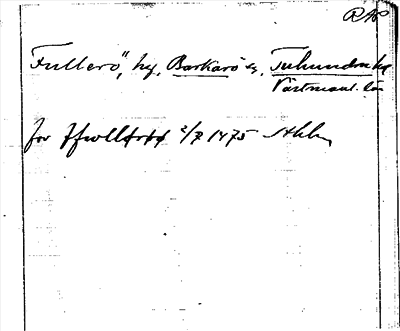 RAP
Fullerö", hg, Barkarö sn, Tuhundra hd
Västmanl. län
for ffwlløø 2/7 1475 Sthlm